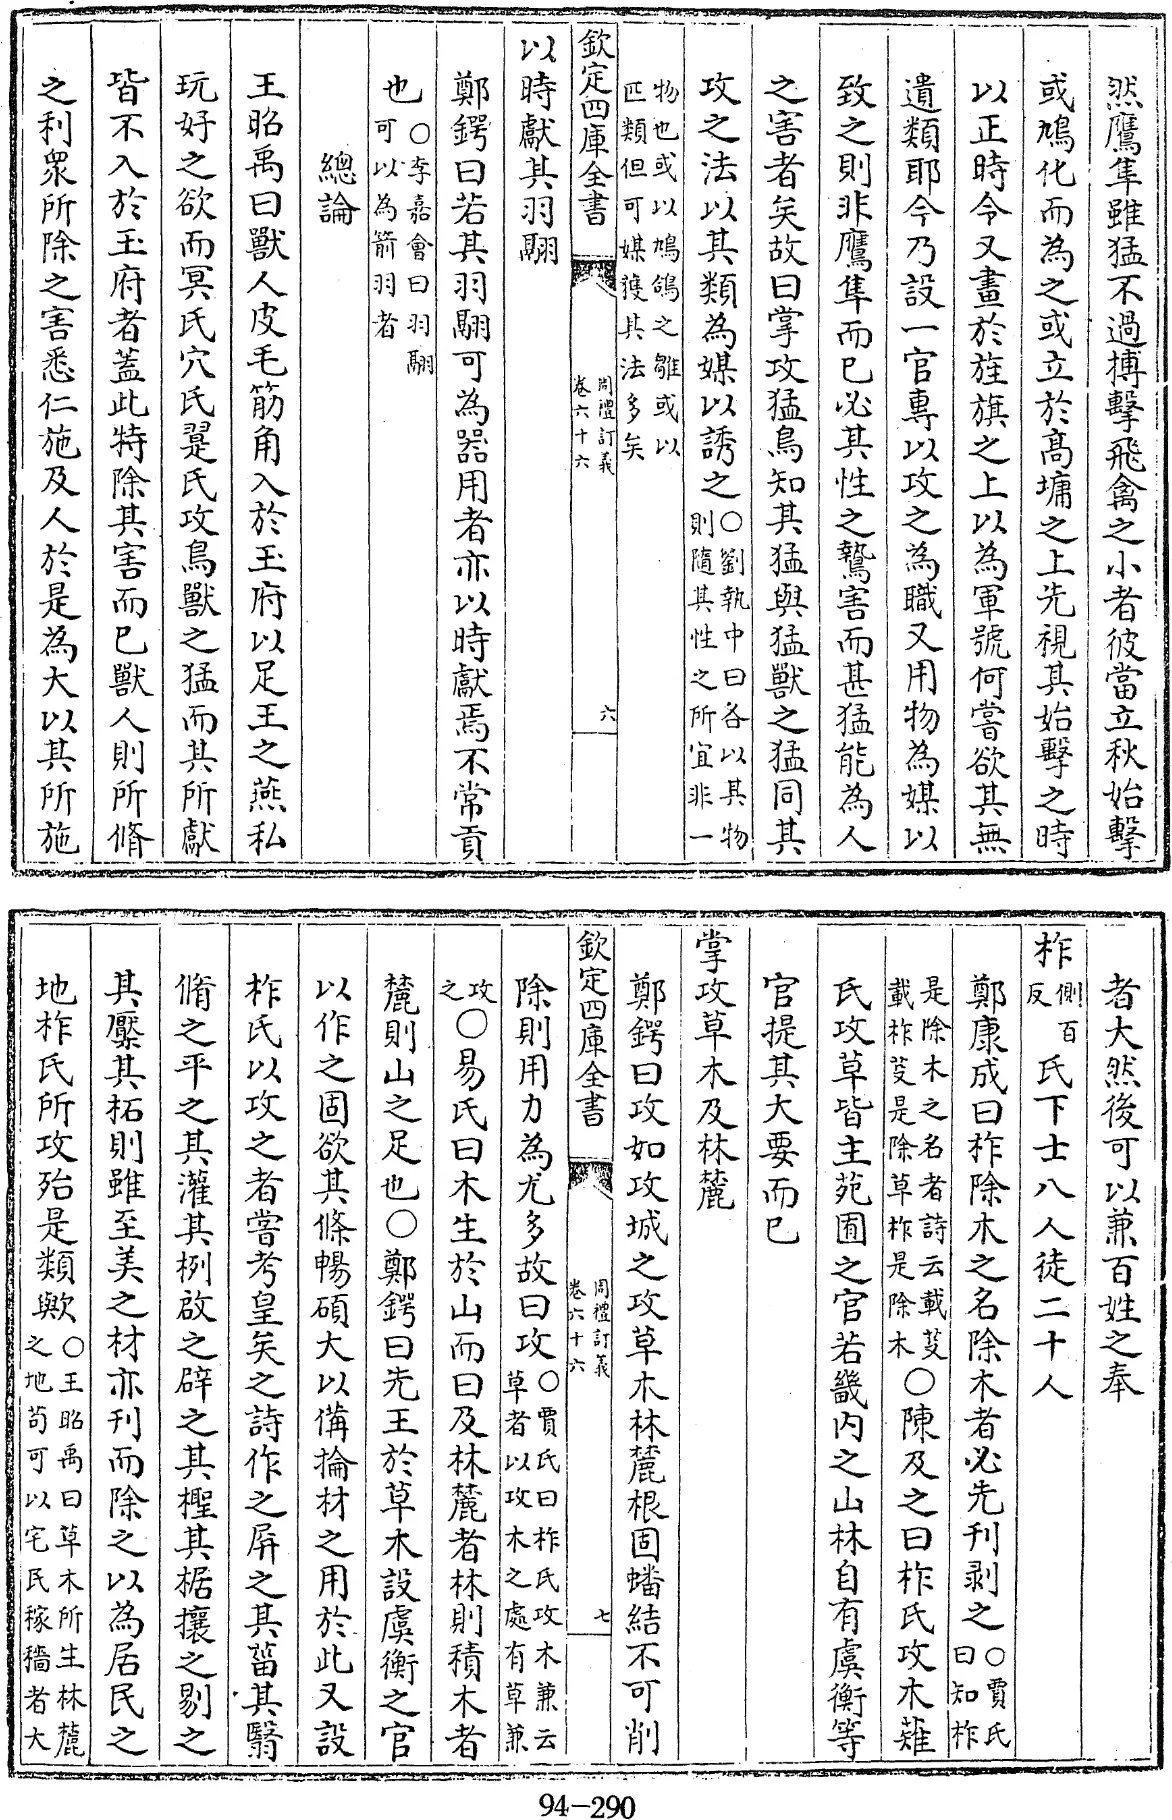 然鷹隼雖猛不過搏擊飛禽之小者彼當立秋始擊
或鳩化而為之或立於髙墉之上先視其始擊之時
以正時令又畫於旌旗之上以為軍號何嘗欲其無
遺類耶今乃設一官專以攻之為職又用物為媒以
致之則非鷹隼而已必其性之鷙害而甚猛能為人
之害者矣故曰掌攻猛鳥知其猛與猛獸之猛同其
攻之法以其類為媒以誘之○劉執中曰各以其物
則隨其性之所宜非一
物也或以鳩鴿之雛或以
匹類但可媒獲其法多矣
欽定四庫全書
周禮訂義
卷六十六
六
以時獻其羽翮
鄭鍔曰若其羽翮可為器用者亦以時獻焉不常貢
也○李嘉會曰羽翮
可以為箭羽者
總論
王昭禹曰獸人皮毛筋角入於玉府以足王之燕私
玩好之欲而冥氏穴氏翨氏攻鳥獸之猛而其所獻
皆不入於玉府者蓋此特除其害而已獸人則所脩
之利衆所除之害悉仁施及人於是為大以其所施
者大然後可以兼百姓之奉
柞側百
反氏下士八人徒二十人
鄭康成曰柞除木之名除木者必先刋剥之○賈氏
曰知柞
是除木之名者詩云載芟
載柞芟是除草柞是除木○陳及之曰柞氏攻木薙
氏攻草皆主苑囿之官若畿内之山林自有虞衡等
官提其大要而已
掌攻草木及林麓
鄭鍔曰攻如攻城之攻草木林麓根固蟠結不可削
欽定四庫全書
周禮訂義
卷六十六
七
除則用力為尤多故曰攻○賈氏曰柞氏攻木兼云
草者以攻木之處有草兼
攻
之○易氏曰木生於山而曰及林麓者林則積木者
麓則山之足也○鄭鍔曰先王於草木設虞衡之官
以作之固欲其條暢碩大以備掄材之用於此又設
柞氏以攻之者嘗考皇矣之詩作之屏之其菑其翳
脩之平之其灌其栵啟之辟之其檉其椐攘之剔之
其檿其柘則雖至美之材亦刋而除之以為居民之
地柞氏所攻殆是類歟○王昭禹曰草木所生林麓
之地苟可以宅民稼穡者大
94-290